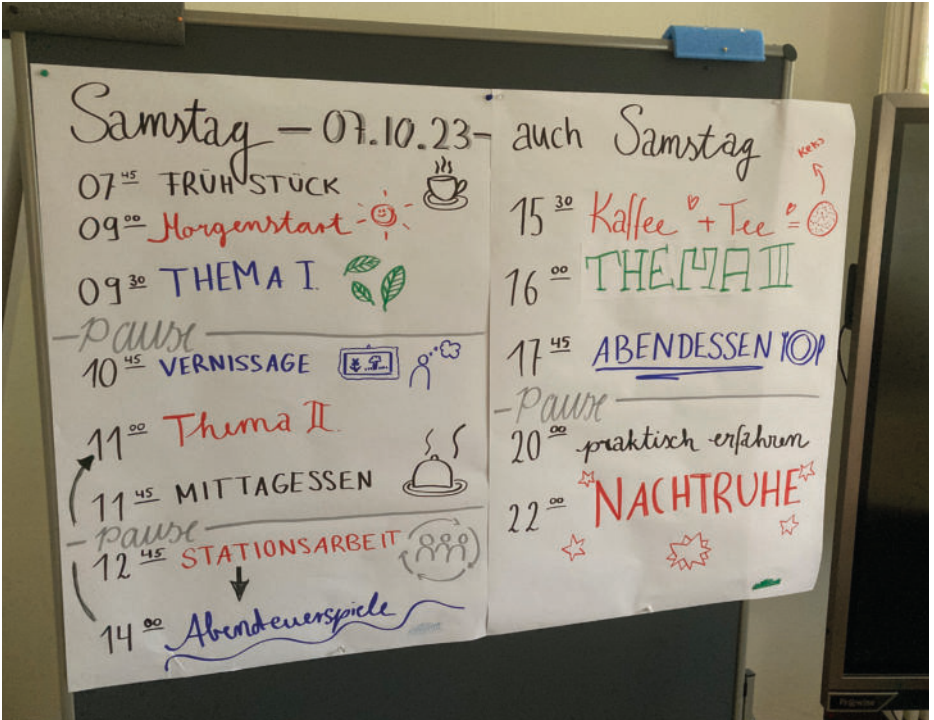 Samstag – 07.10.23 –
07 45 FRÜHSTÜCK
09 00 Morgenstart
09 30 THEMA I
Pause
10 45 VERNISSAGE
11 00 Thema II
11 45 MITTAGESSEN
Pause
12 45 STATIONSARBEIT
14 00 Abendteuerspiele
auch Samstag
Keks
15 30 Kaffee + Tee =
16 00 THEMA III
17 45 ABENDESSEN
Pause
20 00 praktisch erfahren
22 00 NACHTRUHE